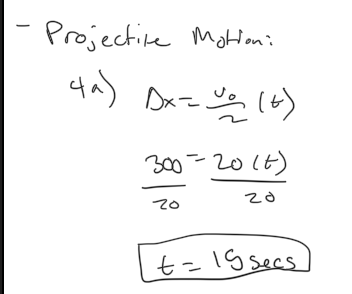 - Projectile Motion:
4a) Dx = v₀/2 (t)
300 = 20 (t)
20 20
t = 15 secs